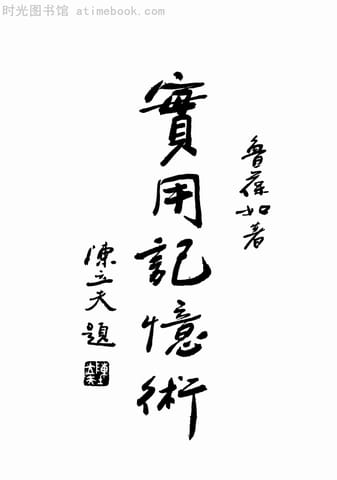 时光图书馆 atimebook.com
魯葆如著
實用記憶術
陳立夫題